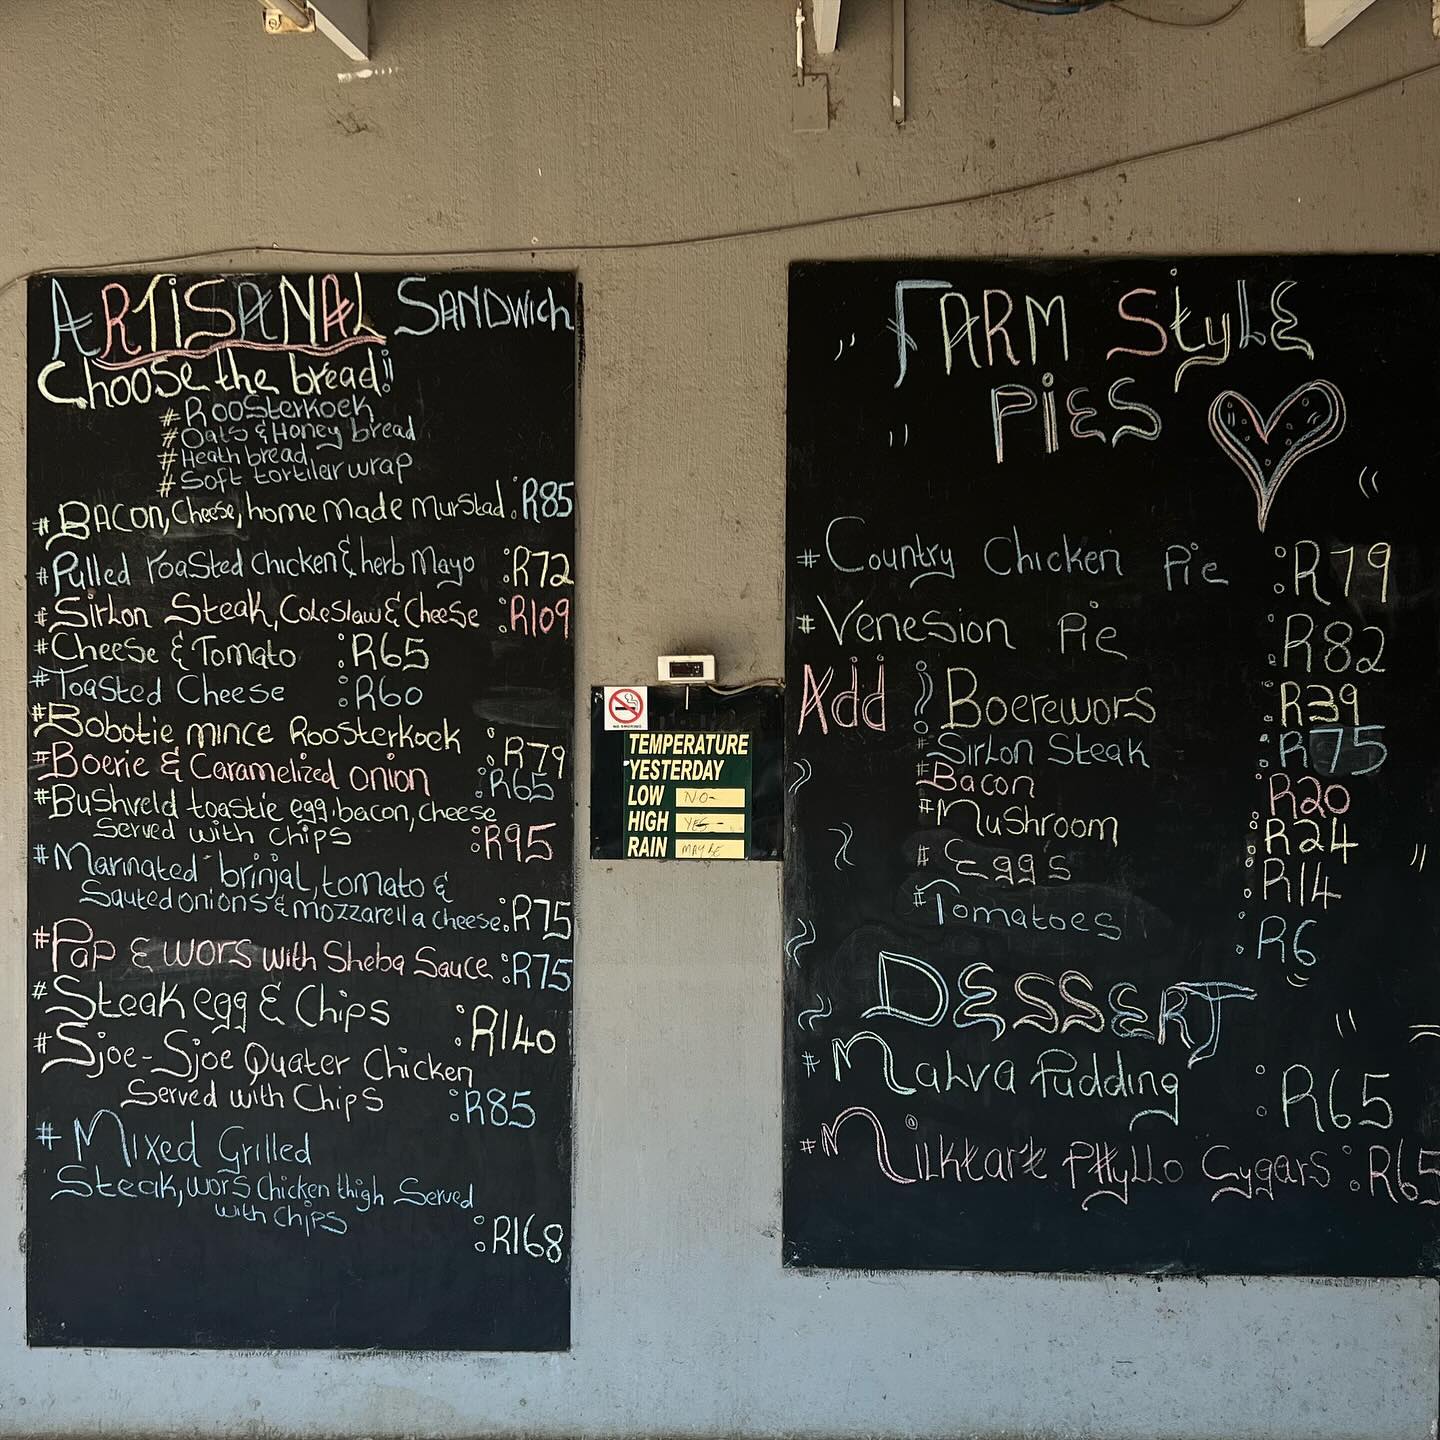 ARTISANAL SANDWich
Choose the bread!
# Roosterkoek
# Oats & Honey bread
# Heath bread
# Soft tortilar wrap
# BACON, Cheese, home made Murstad : R85
# Pulled roasted chicken & herb Mayo : R72
# Sirlon Steak, Coleslaw & Cheese : R109
# Cheese & Tomato : R65
# Toasted Cheese : R60
# Bobotie mince Roosterkoek : R79
# Boerie & Caramelized onion : R65
# Bushveld toastie egg, bacon, cheese
Served with chips : R95
# Marinated brinjal, tomato &
Sauted onions & mozzarella cheese : R75
# Pap & wors with Sheba Sauce : R75
# Steak egg & Chips : R140
# Sjoe-Sjoe Quater Chicken
Served with Chips : R85
# Mixed Grilled
Steak, wors Chicken thigh Served
with Chips : R168
TEMPERATURE
YESTERDAY
LOW NO-
HIGH YES-
RAIN MAYBE
FARM StyLE
PiES
# Country Chicken Pie : R79
# Venesion Pie : R82
Add : Boerewors : R39
# Sirlon Steak : R75
# Bacon : R20
# Mushroom : R24
# Eggs : R14
# Tomatoes : R6
DESSERT
# Malva Pudding : R65
# Milktart Phyllo Cygars : R65